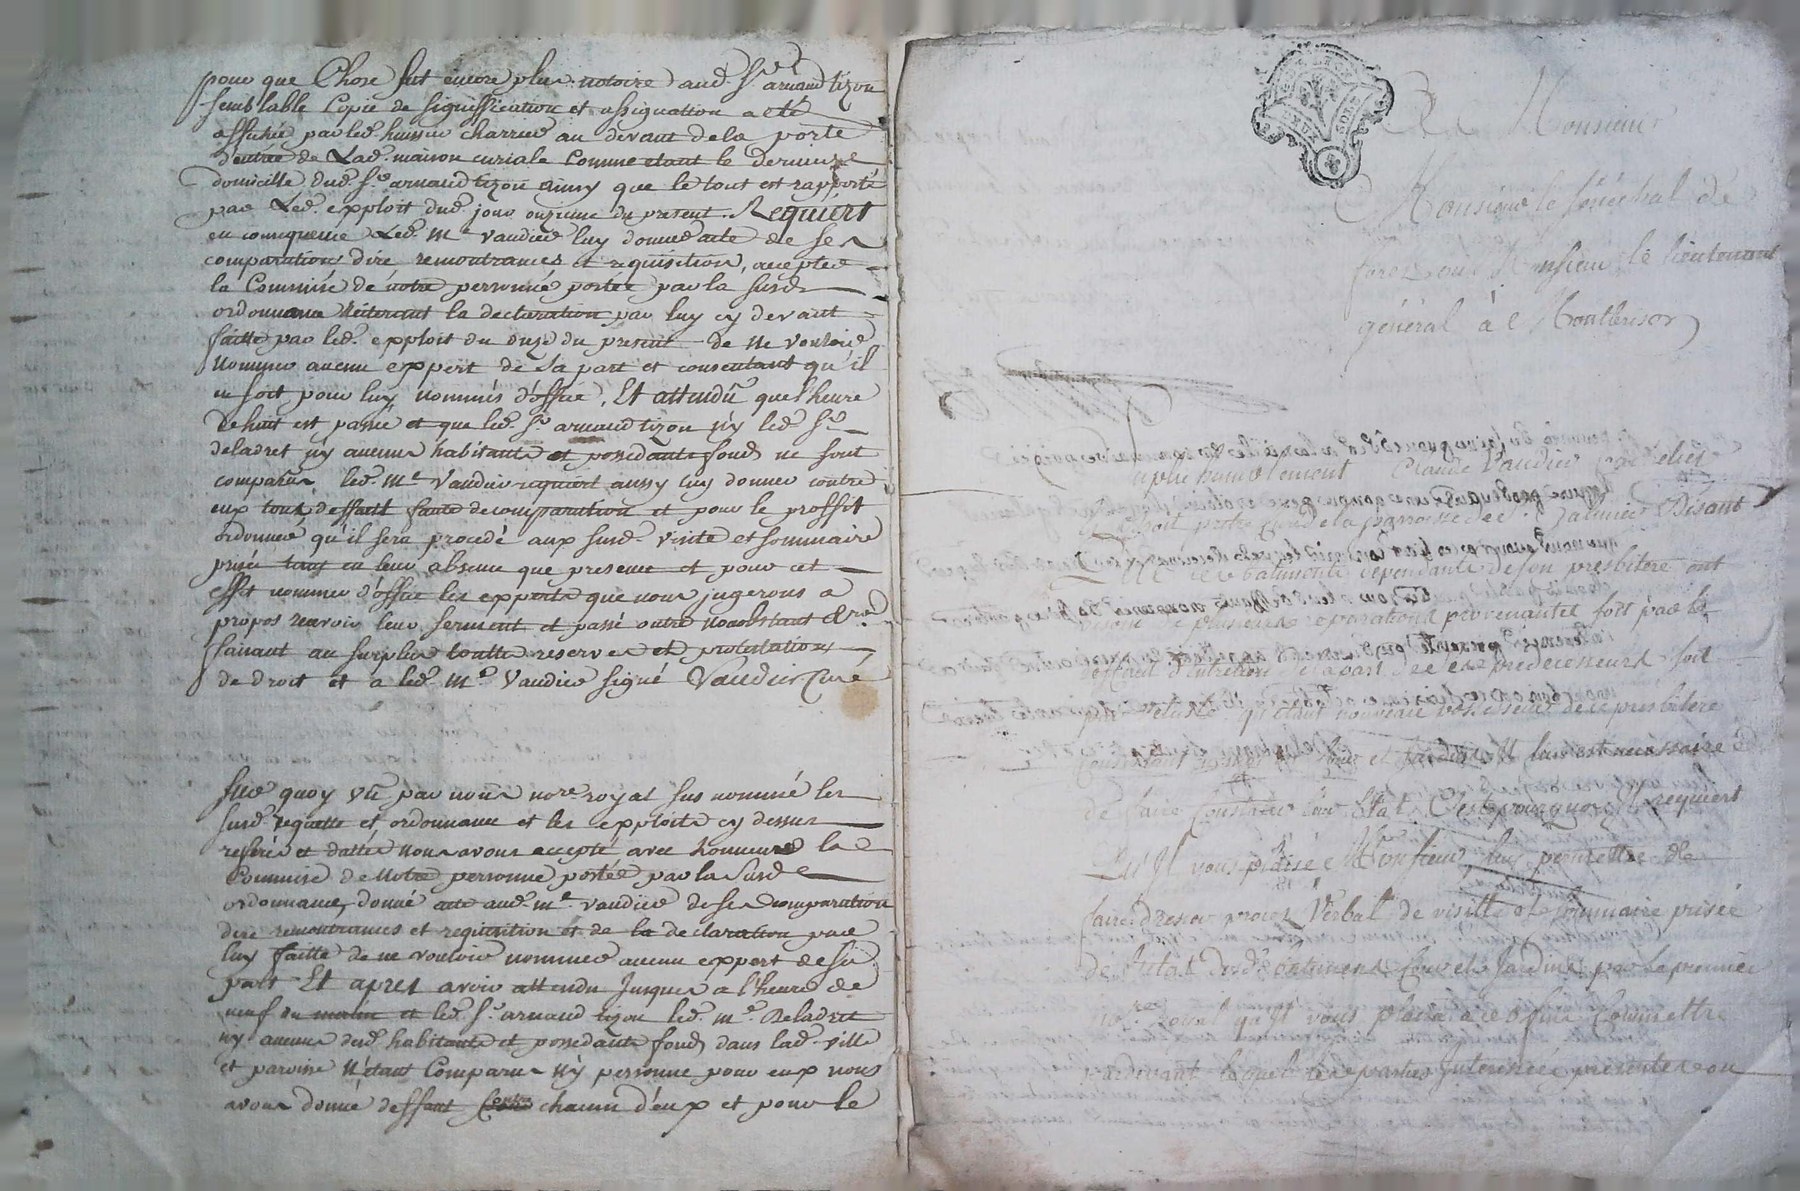 pour que Chose fut encore plus notoire aud. Sr. arnaud tizon
semblable Copie de signiffication et assignation a eté
affichée par led. huissier charrier au devant dela porte
d'entrée de Lad. maison curiale Comme etant le dernier
domicille dud. Sr. arnaud tizon ainsy que le tout est rapporté
par Led. exploit dud. jour onzieme du present. Requiert
en consequence Led. Me. Vaudier luy donner acte de ses
comparution dire remontrances et requisition, accepter
la Commise de notre personne portée par la susd.
ordonnance Réiterant la declaration par luy cy devant
faitte par led. exploit du onze du present de ne vouloir
nommer aucun expert de sa part et consentant qu'il
en soit pour luy nommés d'office, Et attendu que l'heure
de huit est passée et que led. Sr. arnaud tizon ny led. Sr.
deladret ny aucuns habitants et possedants fonds ne sont
comparus led. Me. Vaudier requiert aussy luy donner contre
eux tous deffaut faute de comparution et pour le proffit
ordonner qu'il sera procedé aux susd. visite et sommaire
prisée tant en leur absence que presence et pour cet
effet nommer d'office les experts que nous jugerons a
propos recevoir leur serment et passé outre nonobstant &ra.
faisant au surplus toutte reserves et protestations
de droit et a led. Me. Vaudier signé Vaudier Curé
Sur quoy vu par nous nore. royal sus nommé les
susd. requette et ordonnance et les exploits cy dessus
referés et dattés Nous avons accepté avec honneur la
Commise de Notre personne portée par la Susd.
ordonnance, donné acte aud. Me. Vaudier de ses comparution
dire remontrances et requisition et de la declaration par
luy faitte de ne vouloir nommer aucun expert de sa
part Et apres avoir attendu Jusques a l'heure de
neuf du matin et led. Sr. arnaud tizon led. Me. Deladret
ny aucuns desd. habitants et possedants fonds dans lad. ville
et paroisse N'étant Comparus N'y personne pour eux nous
avons donné deffaut Contre chacun d'eux et pour le
A Monsieur
Monsieur le Sénéchal de
forez ou Monsieur le lieutenant
général à Montbrison
Suplie humblement Claude Vaudier
pretre curé de la parroisse de St. Disant
batiments dependants de son presbitere ont
besoin de plusieurs reparations provenantes soit par le
deffaut d'entretien de la part de ses predecesseurs soit
par vetusté qu'etant nouveau possesseur de ce presbitere
et Jardin Il luy est necessaire
de faire Constater leur Etat C'est pourquoy Il requiert
Qu'Il vous plaise Monsieur luy permettre de
faire dresser procés Verbal de visitte et sommaire prisée
de l'etat desd. batiments Cour et Jardin par le premier
Nore. Royal qu'Il vous plaira a ce Commettre
pardevant lequel les parties Interessées presenteront